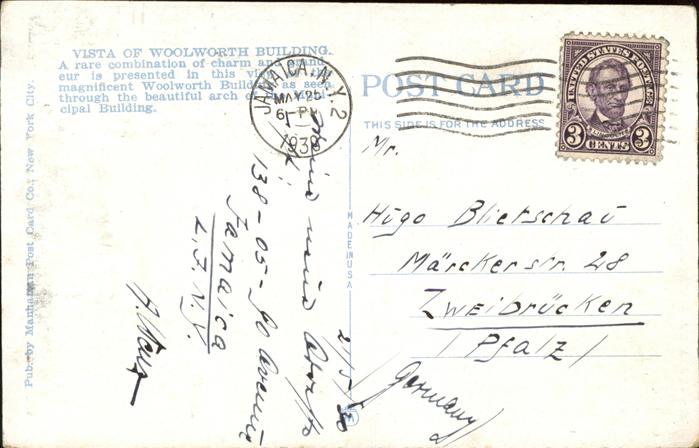 VISTA OF WOOLWORTH BUILDING.
A rare combination of charm and grand-
eur is presented in this view
magnificent Woolworth Building as seen
through the beautiful arch of
cipal Building.
Pub. by Manhattan Post Card Co., New York City.
POST CARD
THIS SIDE IS FOR THE ADDRESS
MADE IN USA
JAMAICA, N.Y. 2
MAY 25
6 PM
1938
UNITED STATES POSTAGE
3 CENTS 3
Mr.
Hugo Blietschau
Märckerstr. 28
Zweibrücken
/Pfalz/
Germany
138-05-90 Avenue
Jamaica
L.I. N.Y.